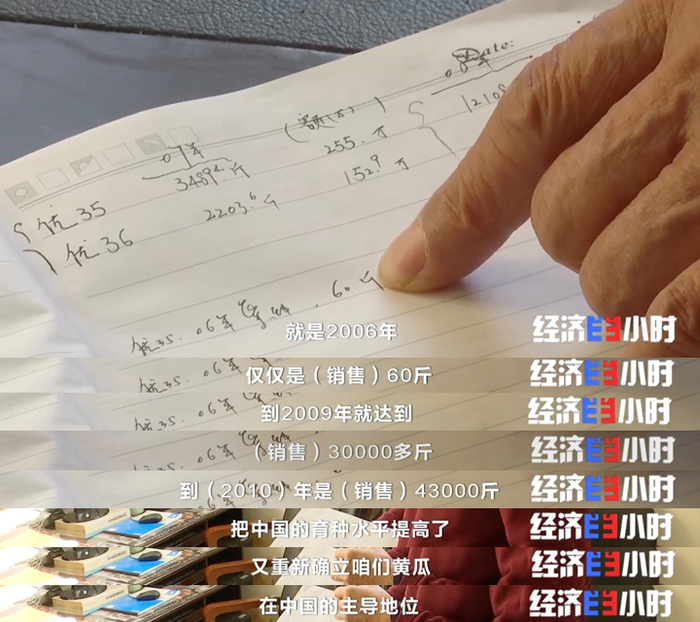 Date:
07年
34894斤
255.万
优35
22036斤
152.9万
优36
优35. 06年 60斤
就是2006年
经济半小时
优35. 06年
仅仅是（销售）60斤
经济半小时
优35. 06年
到2009年就达到
经济半小时
优35. 06年
（销售）30000多斤
经济半小时
到（2010）年是（销售）43000斤
经济半小时
把中国的育种水平提高了
经济半小时
又重新确立咱们黄瓜
经济半小时
在中国的主导地位
经济半小时